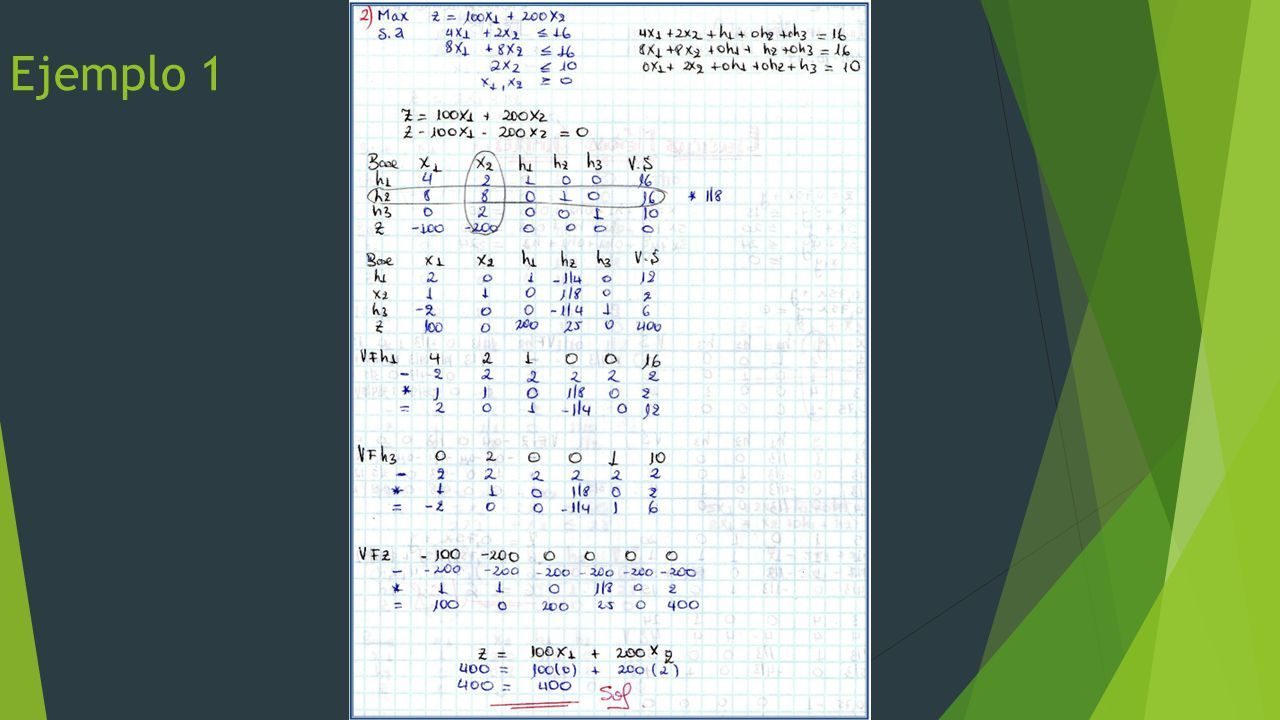 Ejemplo 1
2) Max Z = 100X1 + 200X2
S.a 4X1 + 2X2 ≤ 16 4X1 + 2X2 + h1 + 0h2 + 0h3 = 16
8X1 + 8X2 ≤ 16 8X1 + 8X2 + 0h1 + h2 + 0h3 = 16
2X2 ≤ 10 0X1 + 2X2 + 0h1 + 0h2 + h3 = 10
X1, X2 ≥ 0
Z = 100X1 + 200X2
Z - 100X1 - 200X2 = 0
Base X1 X2 h1 h2 h3 V.S
h1 4 2 1 0 0 16
h2 8 8 0 1 0 16 * 1/8
h3 0 2 0 0 1 10
Z -100 -200 0 0 0 0
Base X1 X2 h1 h2 h3 V.S
h1 2 0 1 -1/4 0 12
X2 1 1 0 1/8 0 2
h3 -2 0 0 -1/4 1 6
Z 100 0 200 25 0 400
VFh1 4 2 1 0 0 16
- 2 2 2 2 2 2
* 1 1 0 1/8 0 2
= 2 0 1 -1/4 0 12
VFh3 0 2 0 0 1 10
- 2 2 2 2 2 2
* 1 1 0 1/8 0 2
= -2 0 0 -1/4 1 6
VFZ -100 -200 0 0 0 0
- -200 -200 -200 -200 -200 -200
* 1 1 0 1/8 0 2
= 100 0 200 25 0 400
Z = 100X1 + 200X2
400 = 100(0) + 200(2)
400 = 400 Sol